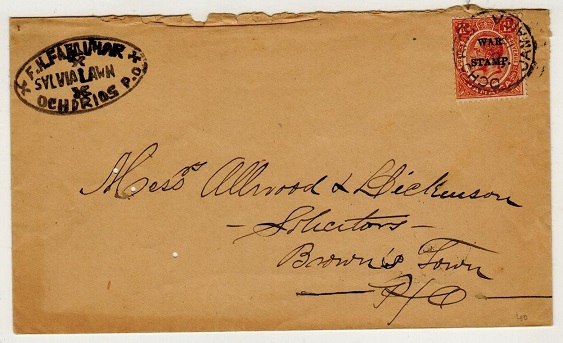 F.N. FARQUHAR
SYLVIA LAWN
OCHORIOS P.O.
WAR
STAMP.
OCHO
JAMAICA
Messrs Allwood & Dickenson
- Solicitors -
Brown's Town
P/O